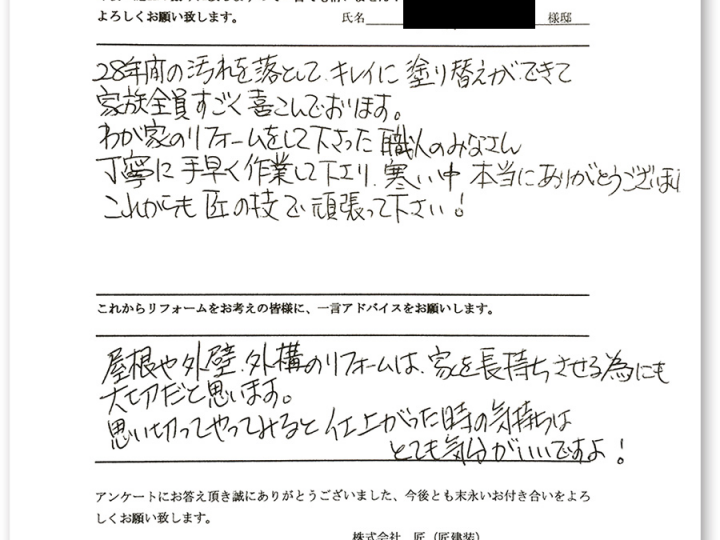 よろしくお願い致します。 氏名 様邸
28年間の汚れを落として、キレイに塗り替えができて
家族全員すごく喜こんでおります。
わが家のリフォームをして下さった職人のみなさん
丁寧に手早く作業して下さり、寒い中 本当にありがとうございまし
これからも匠の技で頑張って下さい!
これからリフォームをお考えの皆様に、一言アドバイスをお願いします。
屋根や外壁、外構のリフォームは、家を長持ちさせる為にも
大切だと思います。
思い切ってやってみると仕上がった時の気持ちは
とても気分がいいですよ!
アンケートにお答え頂き誠にありがとうございました、今後とも末永いお付き合いをよろ
しくお願い致します。
株式会社 匠（匠建装）